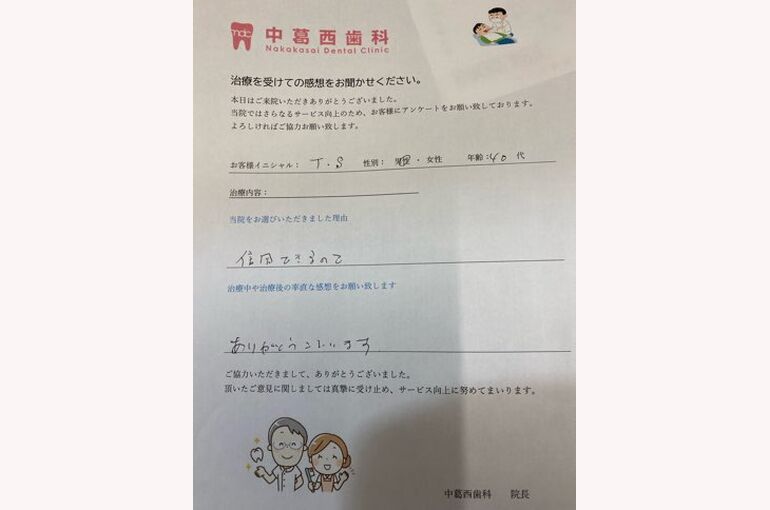 ndc
中葛西歯科
Nakakasai Dental Clinic
治療を受けての感想をお聞かせください。
本日はご来院いただきありがとうございました。
当院ではさらなるサービス向上のため、お客様にアンケートをお願い致しております。
よろしければご協力お願い致します。
お客様イニシャル： T.S 性別： 男性 ・ 女性 年齢：40 代
治療内容：
当院をお選びいただきました理由
信用できるので
治療中や治療後の率直な感想をお願い致します
ありがとうございます
ご協力いただきまして、ありがとうございました。
頂いたご意見に関しましては真摯に受け止め、サービス向上に努めてまいります。
中葛西歯科 院長